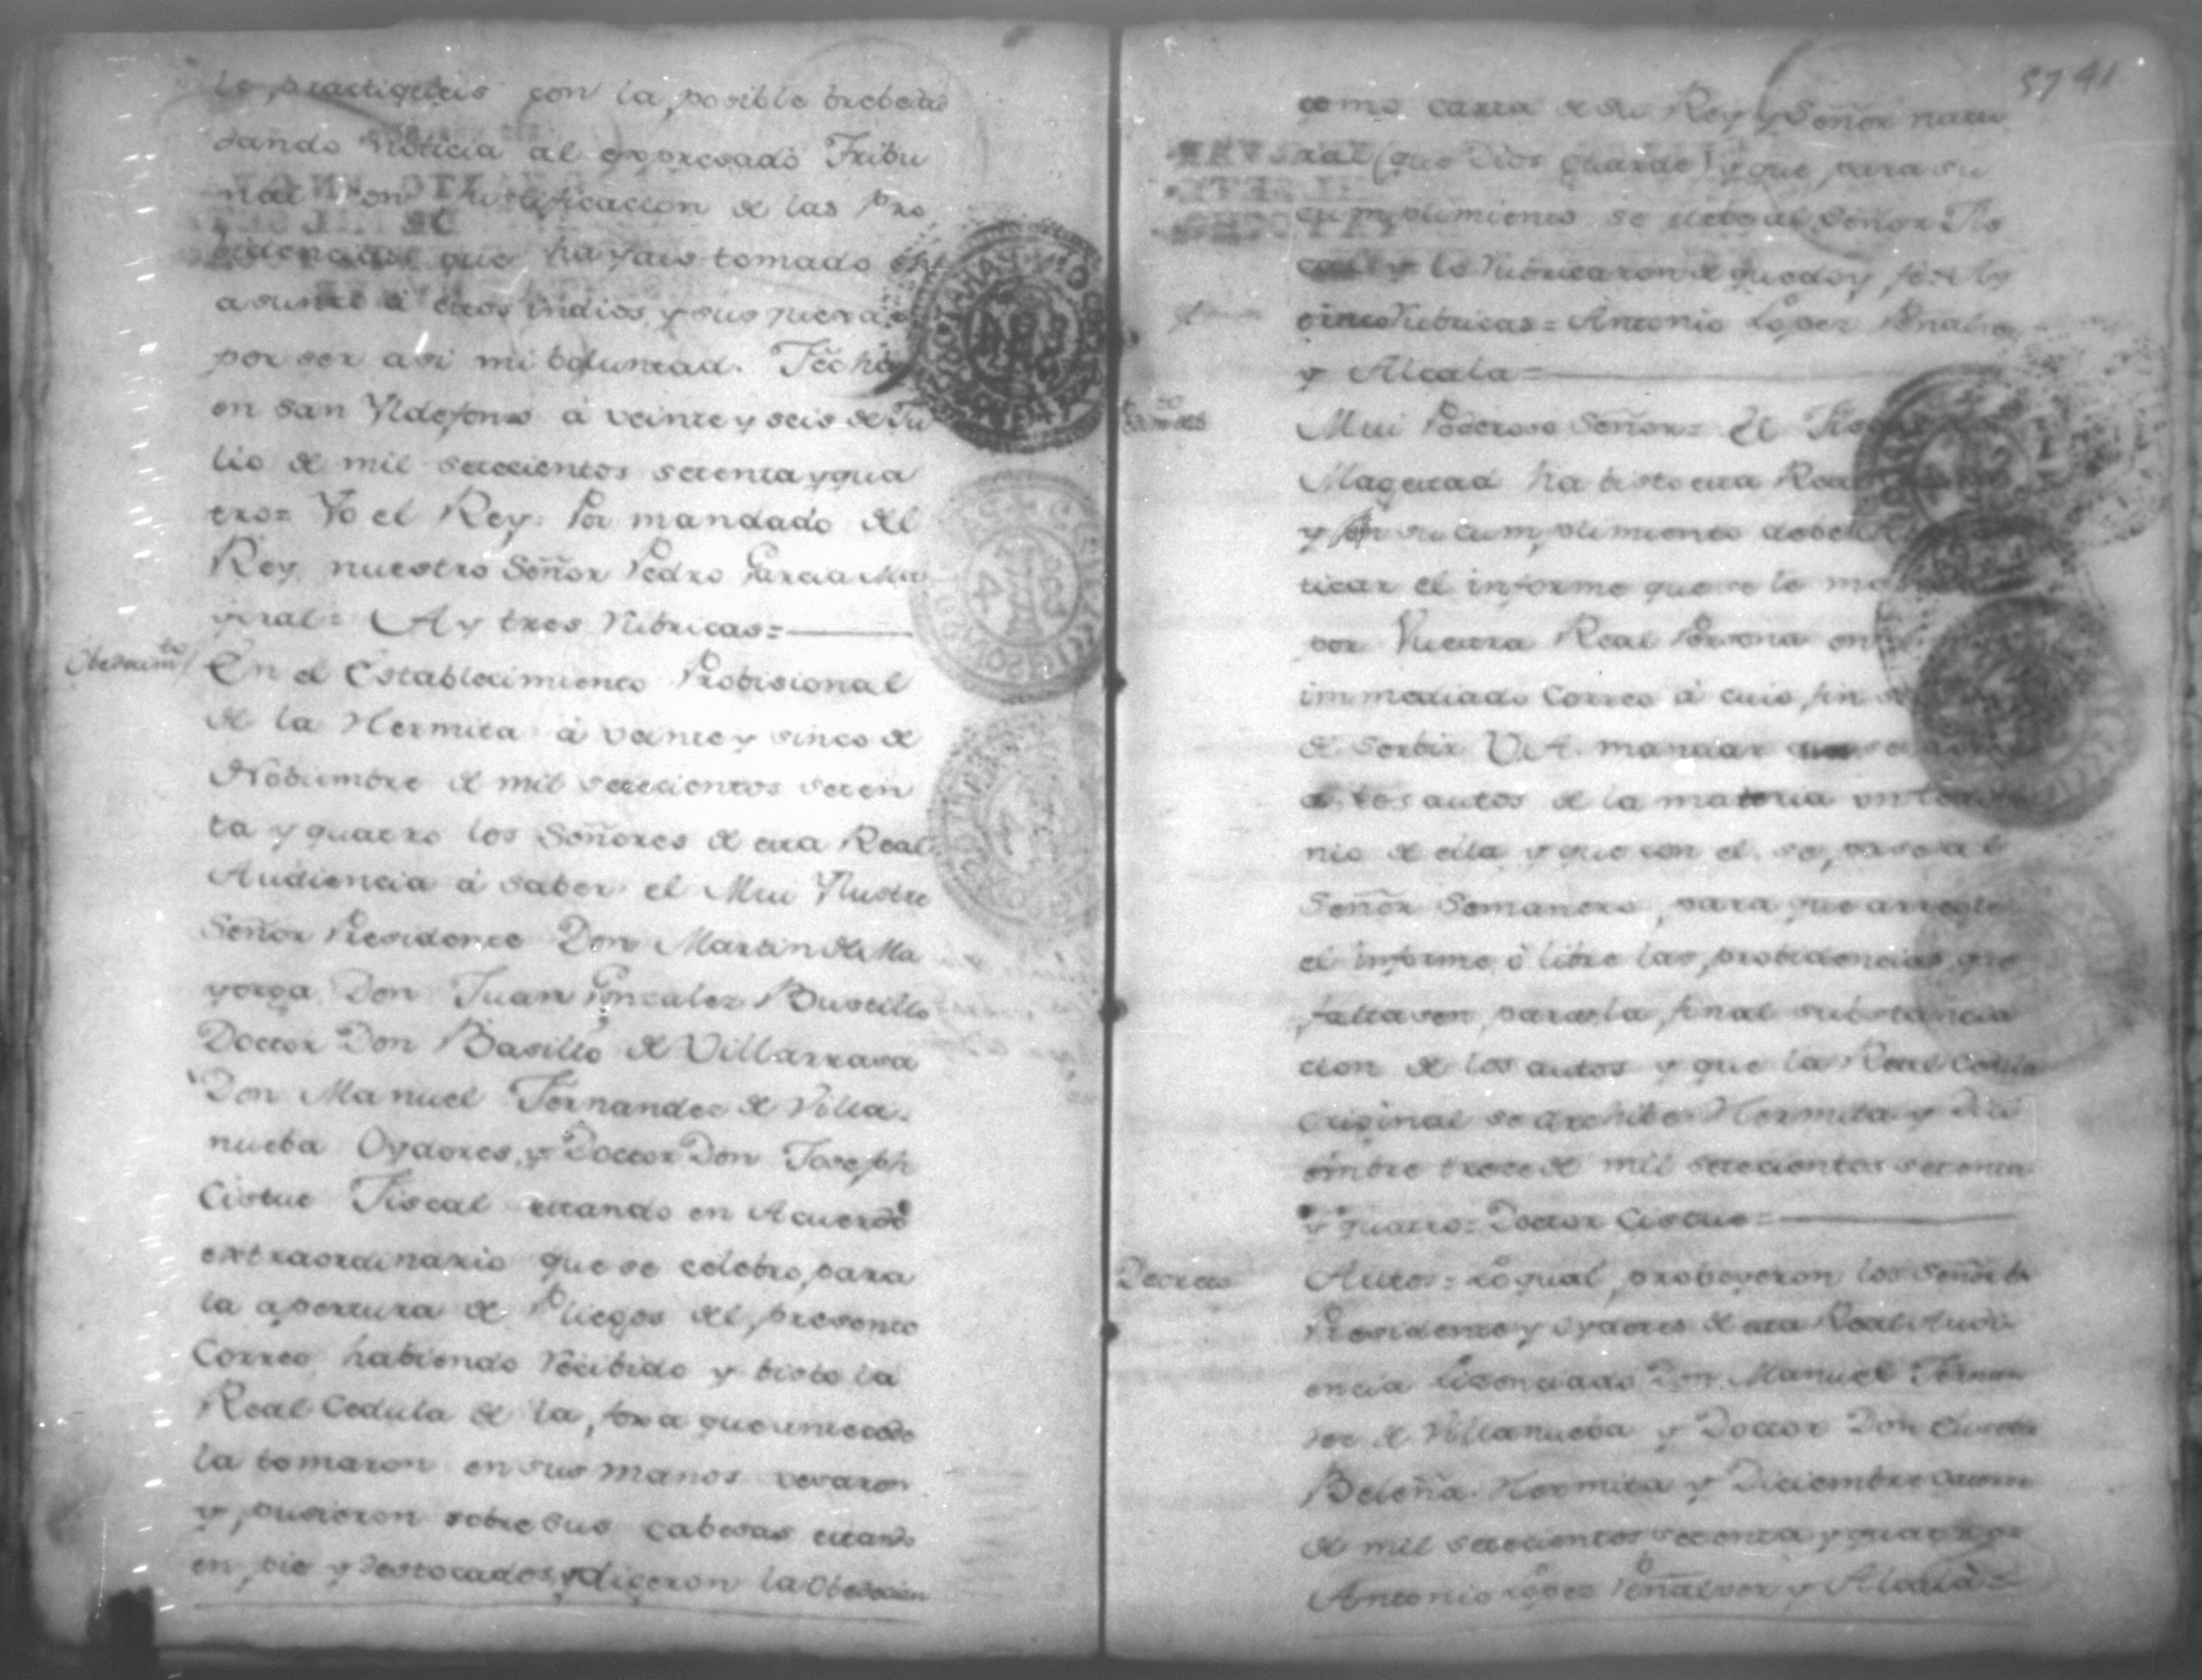 lo practiqueis con la posible brebedad
dando noticia al expresado Tribu
nal con justificacion de las pro
videncias que hayais tomado en el
asunto á estos indios, y sus
por ser asi mi boluntad. Fecha
en San Yldefonso á veinte y seis de Ju
lio de mil setecientos setenta y qua
tro= Yo el Rey. Por mandado del
Rey nuestro Señor Pedro Garcia Ma
yoral= Ay tres Rubricas=
Obedecimto
En el Establecimiento Probisional
de la Hermita á veinte y sinco de
Nobiembre de mil setecientos seten
ta y quatro los Señores de esta Real
Audiencia á saber el Mui Ylustre
Señor Presidente Don Martin de Ma
yorga Don Juan Gonzalez Bustillo
Doctor Don Basilio de Villarrasa
Don Manuel Fernandez de Villa.
nueba Oydores, y Doctor Don Joseph
Cistue Fiscal estando en Acuerdo
extraordinario que se celebro para
la apertura de Pliegos del presente
Correo, habiendo recibido y bisto la
Real Cedula de la foxa que antecede
la tomaron en sus manos vesaron
y pusieron sobre sus cabesas estando
en pie y destocados, y digeron la Obedecian
5741
como carta de su Rey y Señor natu
ral (que Dios guarde) y que para su
cumplimiento se llebe al Señor Fis
cal y lo rubricaron de que doy fee= Ay
cinco rubricas= Antonio Lopez Peñalver
y Alcala=
Mui Poderoso Señor= El Fiscal
Magestad ha bisto esta Real
y en su cumplimiento debe
ticar el informe que se le
por Vuestra Real Persona en
immediato Correo á cuio fin
de serbir V.A. mandar que se
de los autos de la materia un testimo
nio de ella y que con el se pase al
Señor Semanero, para que arregle
el informe ó libre las probidencias que
faltasen para la final substancia
cion de los autos y que la Real Cedula
original se archibe. Hermita y Dici
embre trece de mil setecientos setenta
y quatro= Doctor Cistue=
Decreto
Autos= Lo qual probeyeron los Señores
Presidente y Oydores de esta Real Audi
encia Licenciado Don Manuel Fernan
dez de Villanueba y Doctor Don Eusebio
Beleña. Hermita y Diciembre catorce
de mil setecientos setenta y quatro=
Antonio Lopez Peñalver y Alcalá=